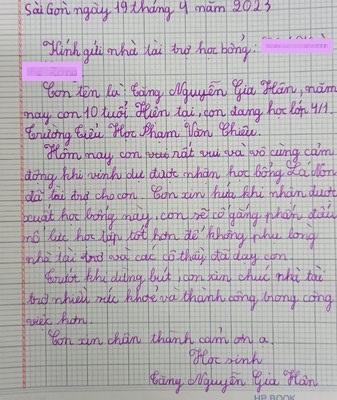 Sài Gòn ngày 19 tháng 4 năm 2023
Kính gửi nhà tài trợ học bổng:
Con tên là: Tăng Nguyễn Gia Hân, năm
nay con 10 tuổi. Hiện tại, con đang học lớp 4/1.
Trường Tiểu Học Phạm Văn Chiêu.
Hôm nay con rất vui và vô cùng cảm
động khi vinh dự được nhận học bổng Lá Non
đã tài trợ cho con. Con xin hứa khi nhận được
xuất học bổng này, con sẽ cố gắng phấn đấu
nỗ lực học tập tốt hơn để không phụ lòng
nhà tài trợ và các cô thầy đã dạy con.
Trước khi dừng bút, con xin chúc nhà tài
trợ nhiều sức khoẻ và thành công trong công
việc hơn.
Con xin chân thành cảm ơn ạ.
Học sinh
Tăng Nguyễn Gia Hân
HP BOOK